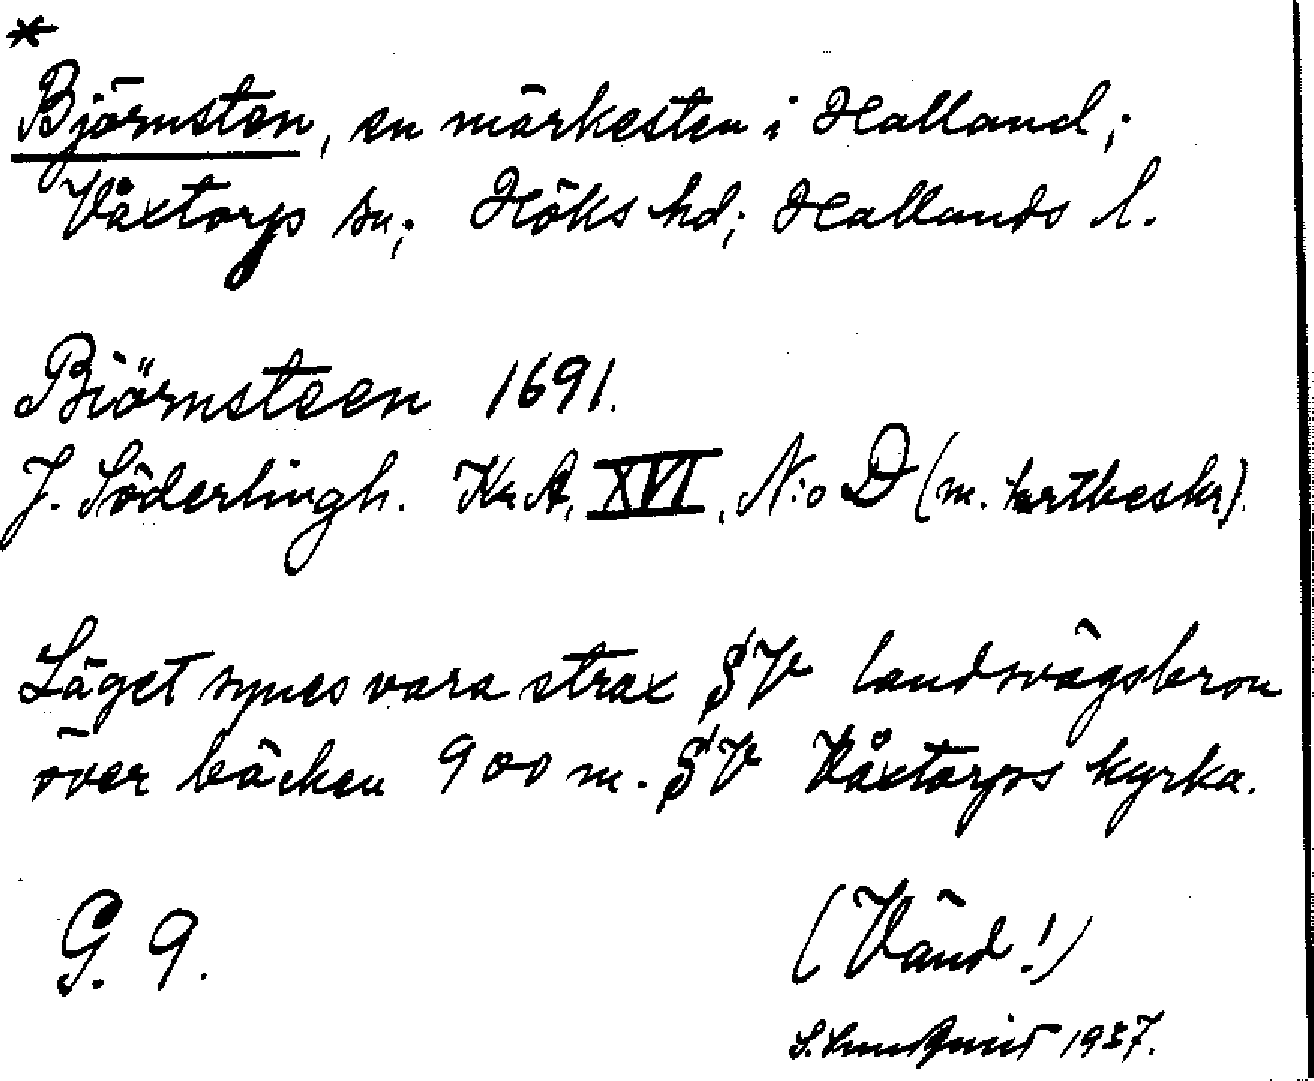 *
Björnsten, en märkesten i Halland;
Våxtorp sn; Höks hd; Hallands l.
Biörnsteen 1691.
J. Söderlingh. Kr. A, XVI, N:o D (m. kartbeskr).
Läget synes vara strax SV landsvägsbron
över bäcken 900 m. SV Våxtorps kyrka.
G. 9.
(Vänd!)
1937.